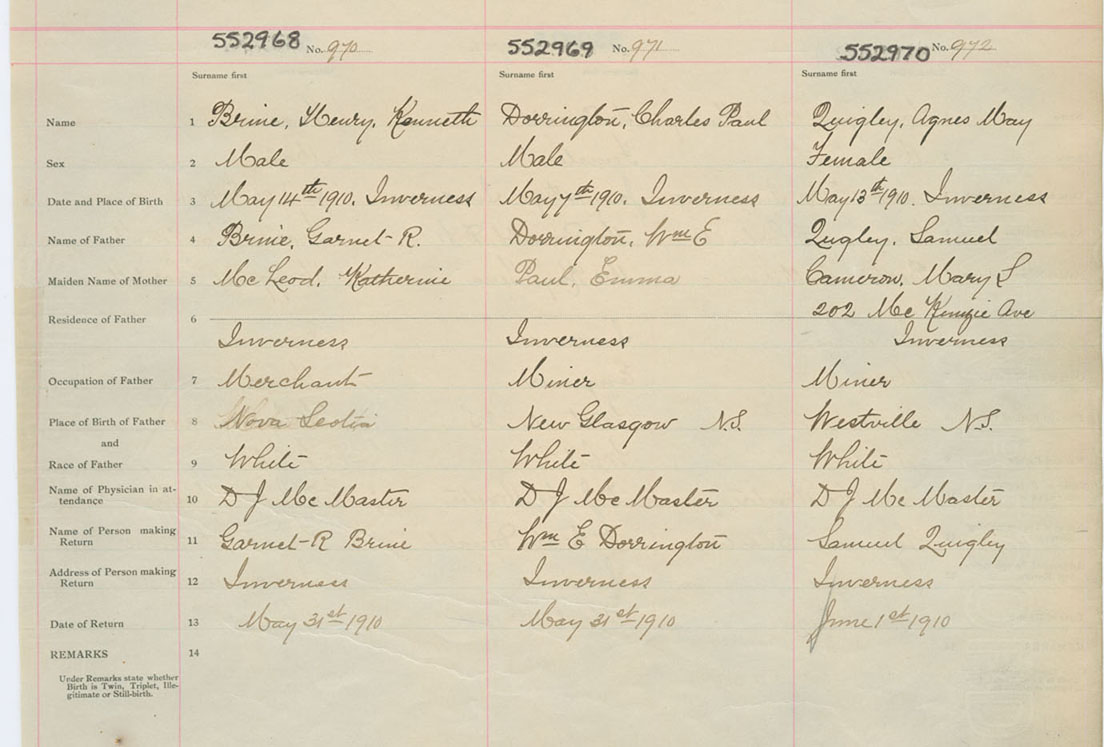 552968 No. 970 552969 No. 971 552970 No. 972
Surname first Surname first Surname first
Name 1 Brine, Henry, Kenneth Dorrington, Charles Paul Quigley, Agnes May
Sex 2 Male Male Female
Date and Place of Birth 3 May 14th 1910. Inverness May 7th 1910. Inverness May 13th 1910. Inverness
Name of Father 4 Brine, Garnet R. Dorrington, Wm E Quigley, Samuel
Maiden Name of Mother 5 Mc Leod, Katherine Paul, Emma Cameron, Mary S
202 Mc Kenzie Ave
Residence of Father 6
Inverness Inverness Inverness
Occupation of Father 7 Merchant Miner Miner
Place of Birth of Father 8 Nova Scotia New Glasgow N.S. Westville N.S.
and
Race of Father 9 White White White
Name of Physician in at-
tendance 10 D J Mc Master D J Mc Master D J Mc Master
Name of Person making
Return 11 Garnet R Brine Wm E Dorrington Samuel Quigley
Address of Person making
Return 12 Inverness Inverness Inverness
Date of Return 13 May 31st 1910 May 31st 1910 June 1st 1910
REMARKS 14
Under Remarks state whether
Birth is Twin, Triplet, Ille-
gitimate or Still-birth.